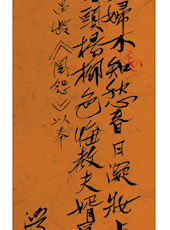 婦不知愁春日凝妝上
頭楊柳色悔教夫婿
昌齡《閨怨》以奉